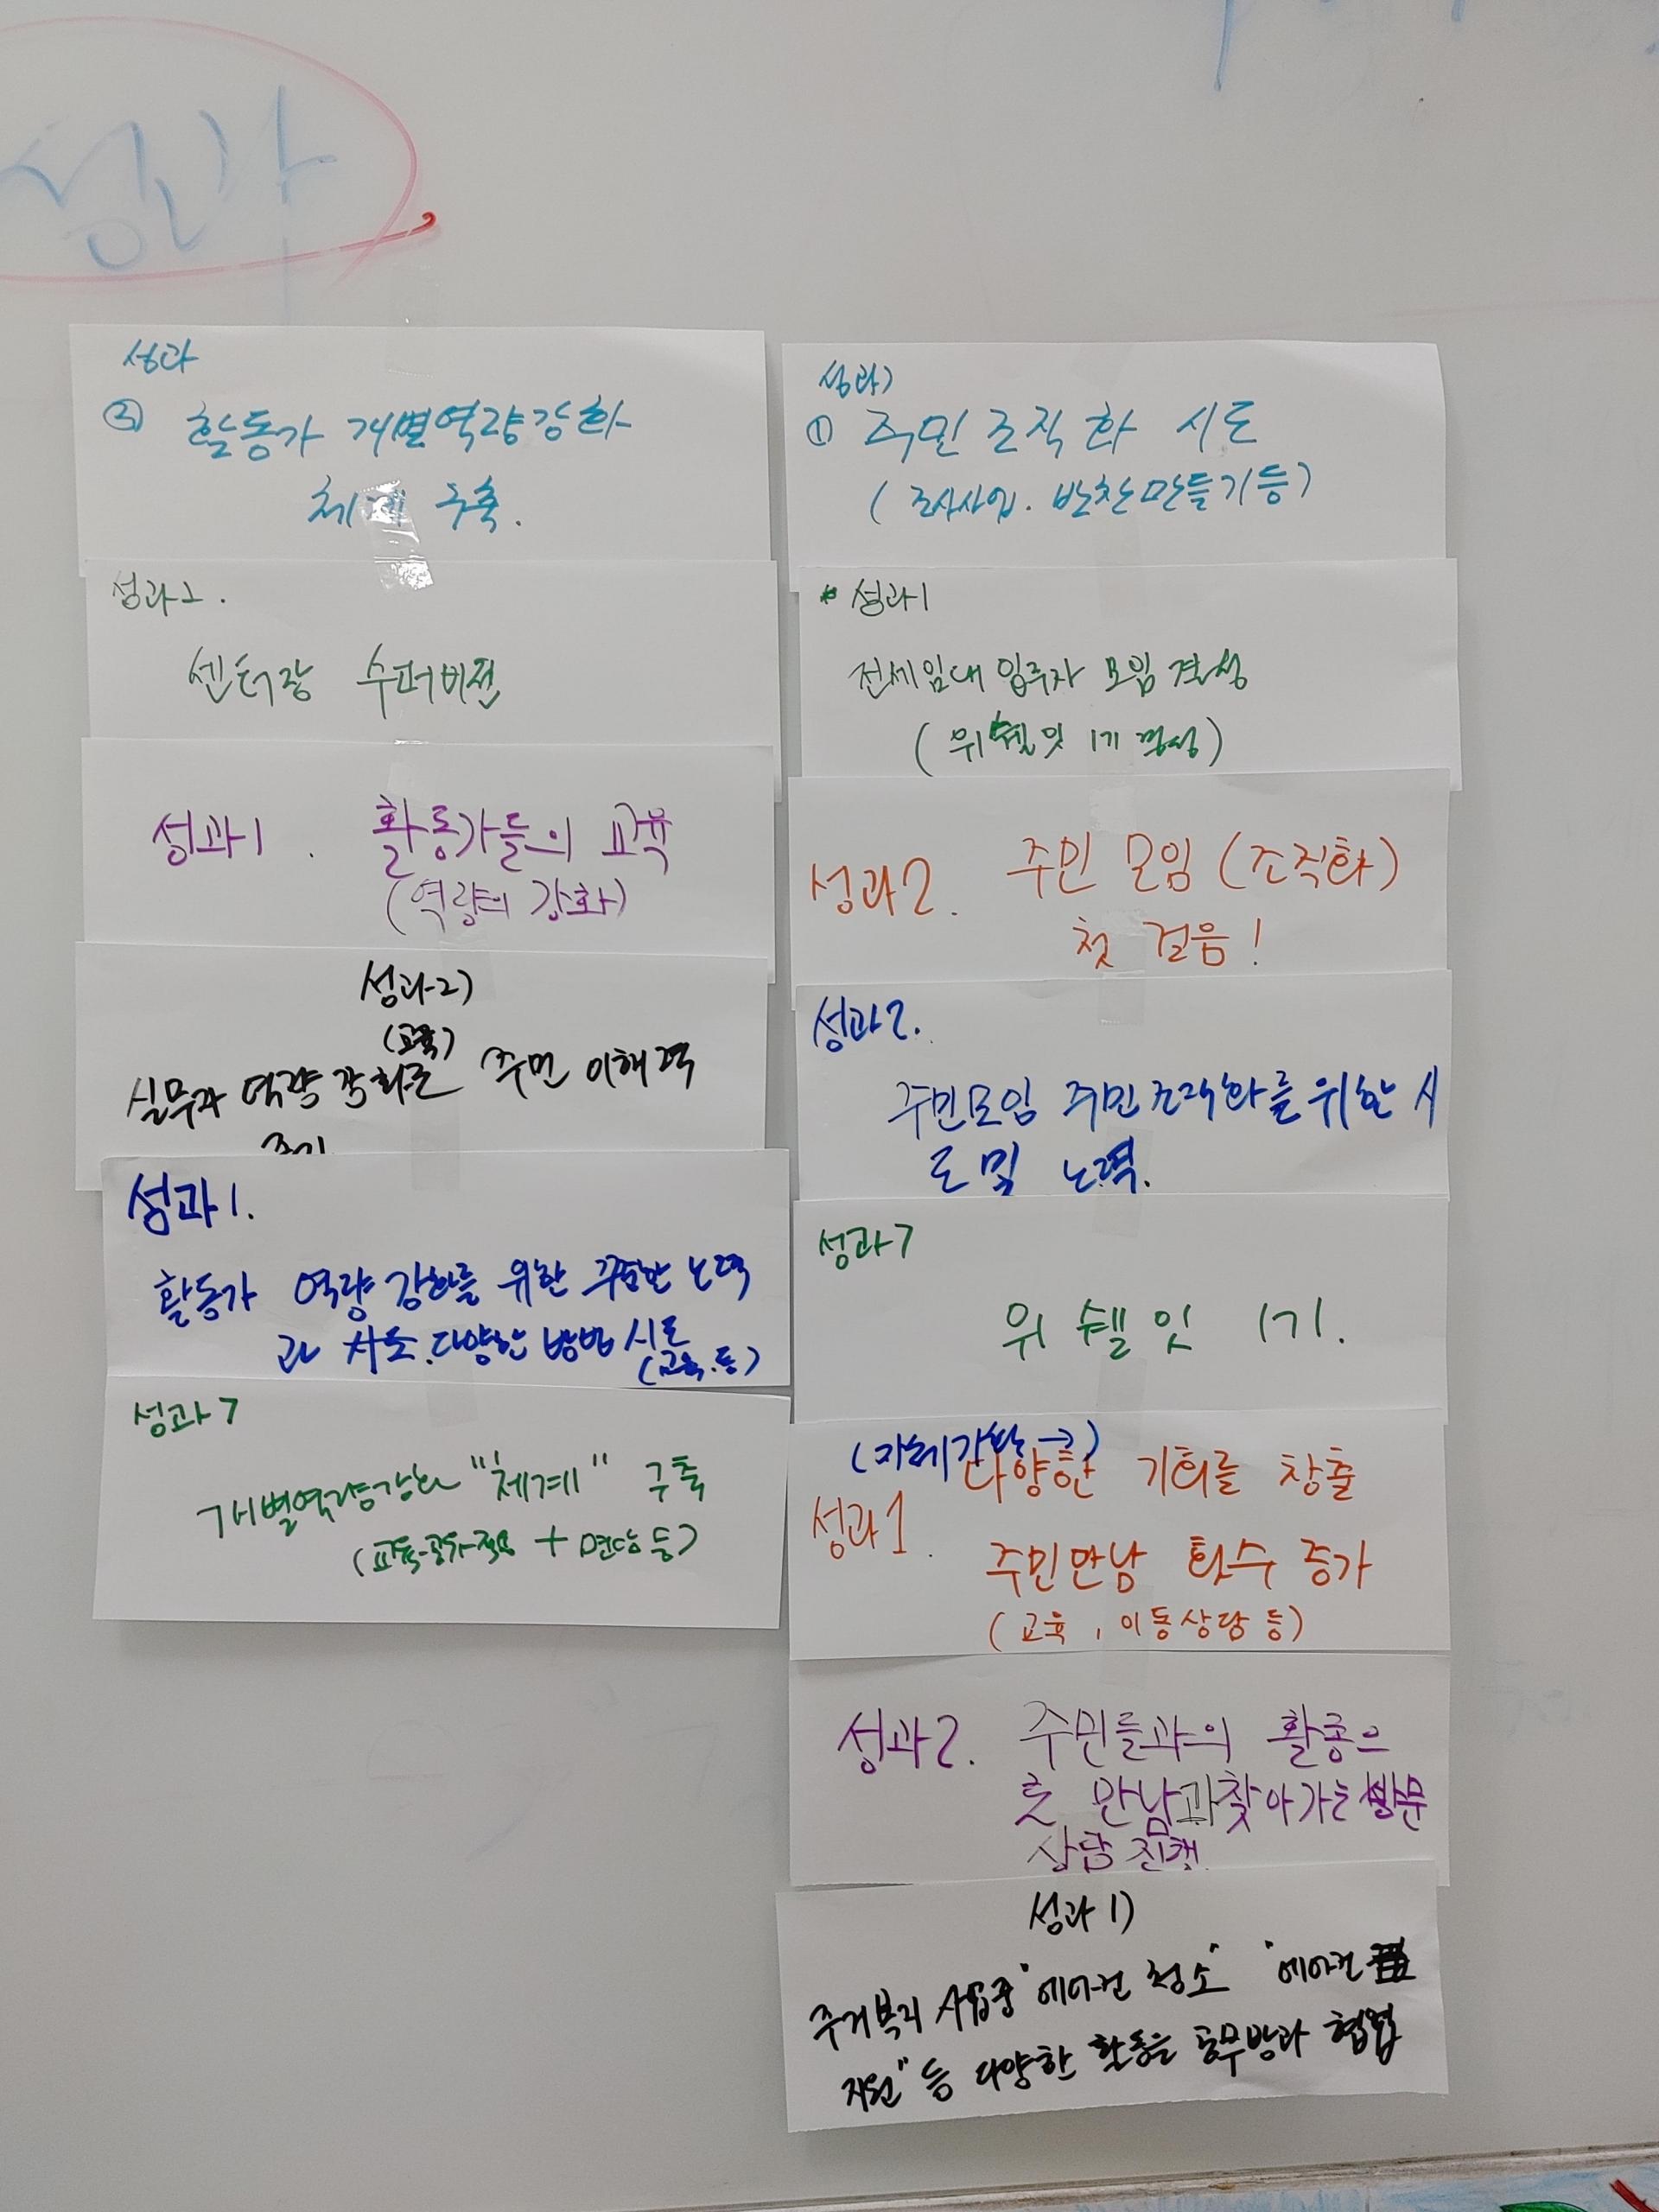 성과
성과
② 활동가 개별역량강화
체계 구축.
성과2.
센터장 수퍼비젼
성과1. 활동가들의 교육
(역량의 강화)
성과2)
(교육)
실무자 역량 강화로 주민 이해력
성과1.
활동가 역량 강화를 위한 꾸준한 노력
과 시도. 다양한 방법 시도
(교육.등)
성과7
개별역량강화 "체계" 구축
(교육-공가-적용 + 면담 등)
성과)
① 주민조직화 시도
(조사사업. 반찬만들기등)
* 성과1
전세임대 입주자 모임 결성
(위쉘잇 1기 결성)
성과2. 주민 모임 (조직화)
첫 걸음!
성과2.
주민모임 주민조직화를 위한 시
도 및 노력.
성과7
위쉘잇 1기.
다양한 기회를 창출
성과1. 주민만남 횟수 증가
(교육, 이동상담 등)
성과2. 주민들과의 활동으
로 만남과 찾아가는 방문
상담 진행.
성과1)
주거복지 사업중 "에어컨 청소" "에어컨
지원" 등 다양한 활동을 공무방과 협업